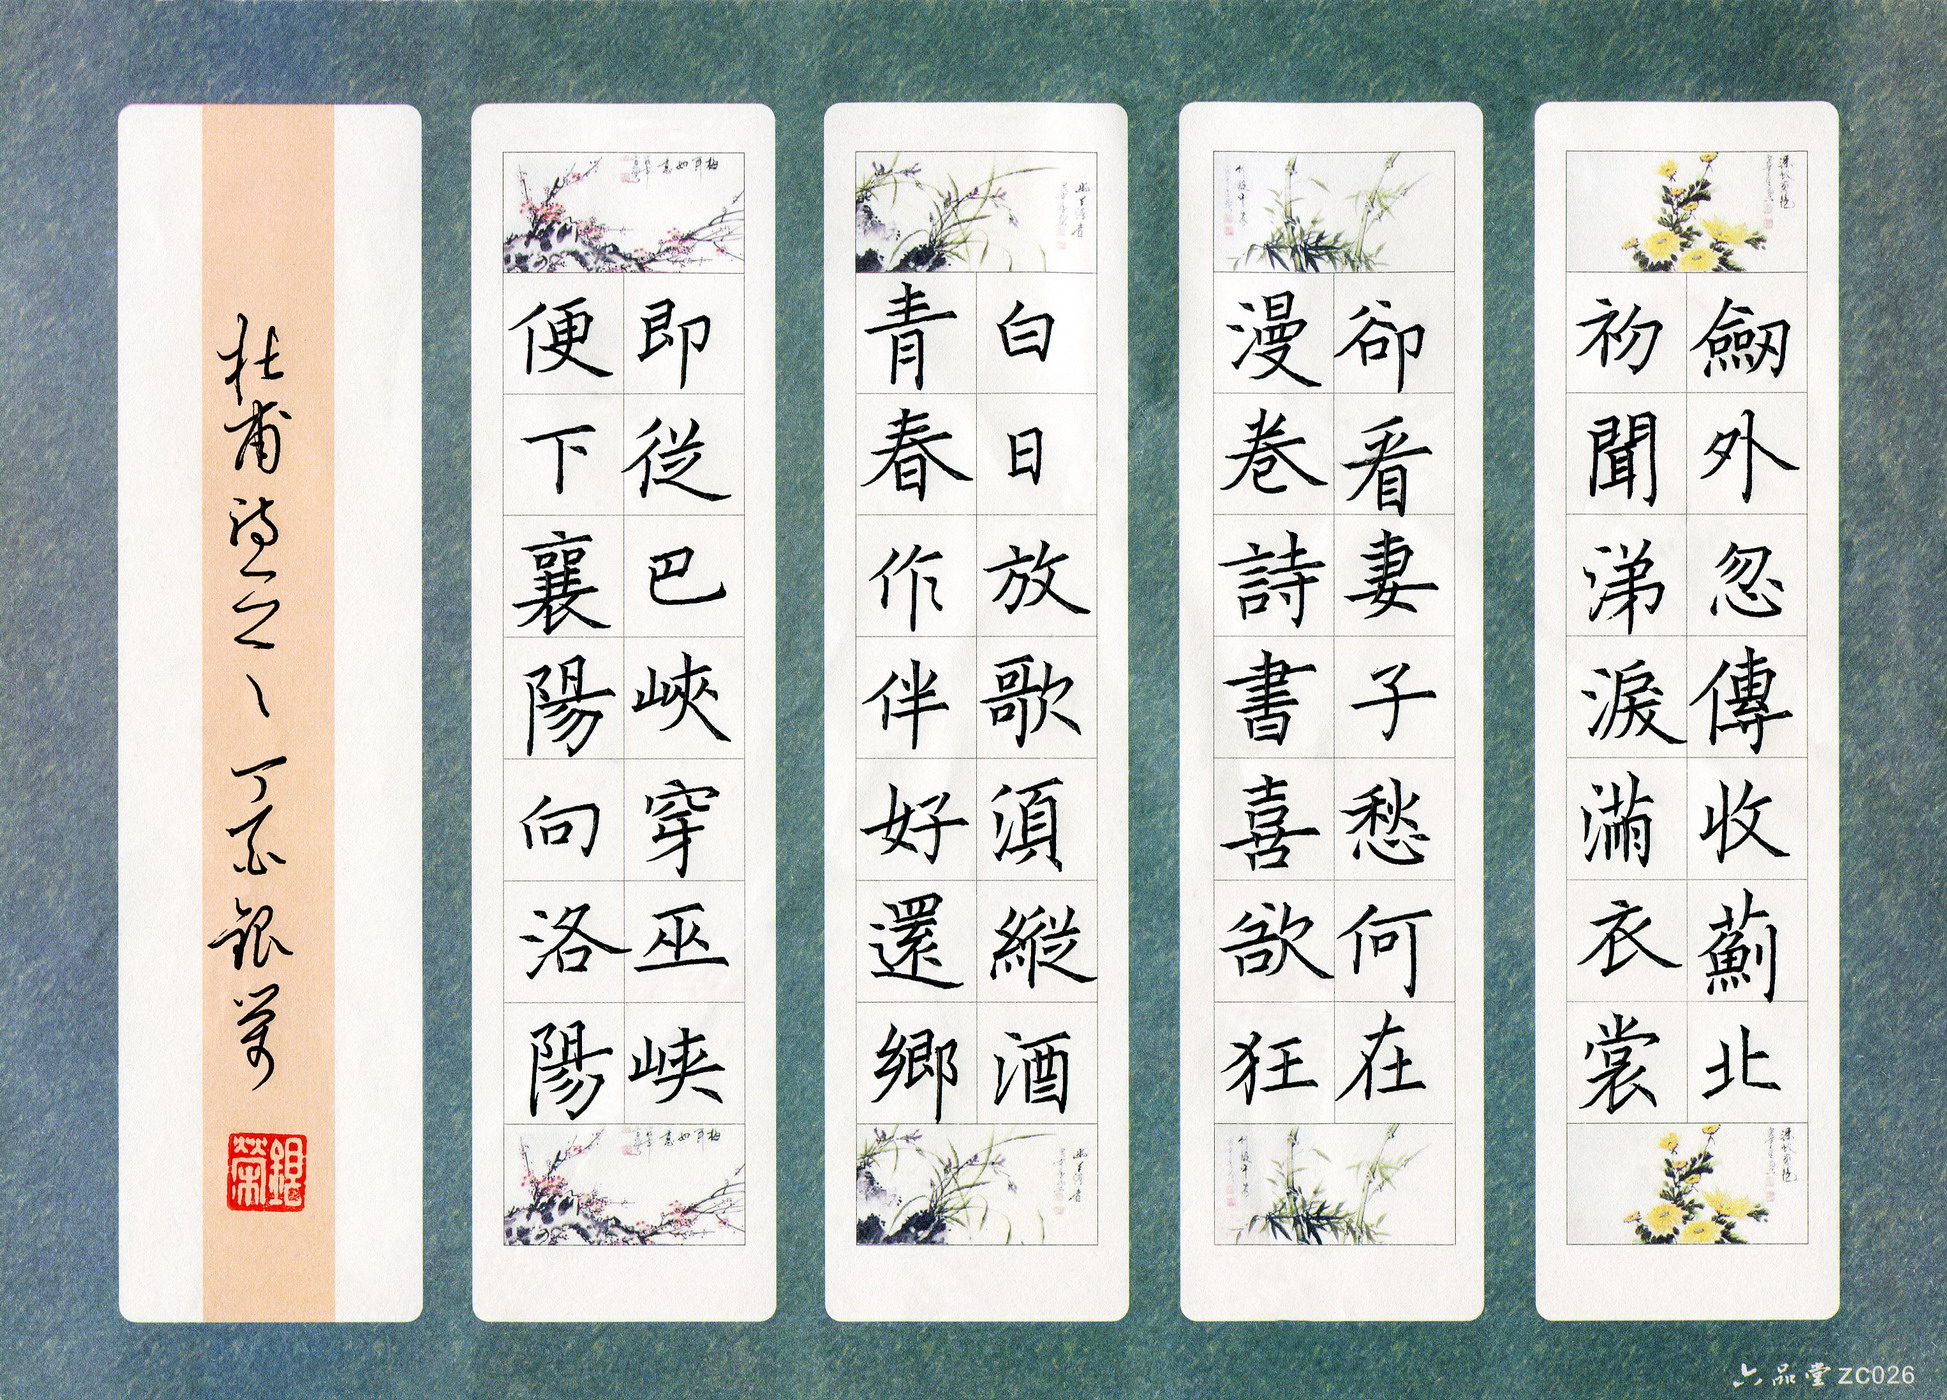 劒外忽傳收薊北
初聞涕淚滿衣裳
卻看妻子愁何在
漫卷詩書喜欲狂
白日放歌須縱酒
青春作伴好還鄉
即從巴峽穿巫峽
便下襄陽向洛陽
杜甫詩之一丁酉銀榮
銀榮
六品堂 ZC026